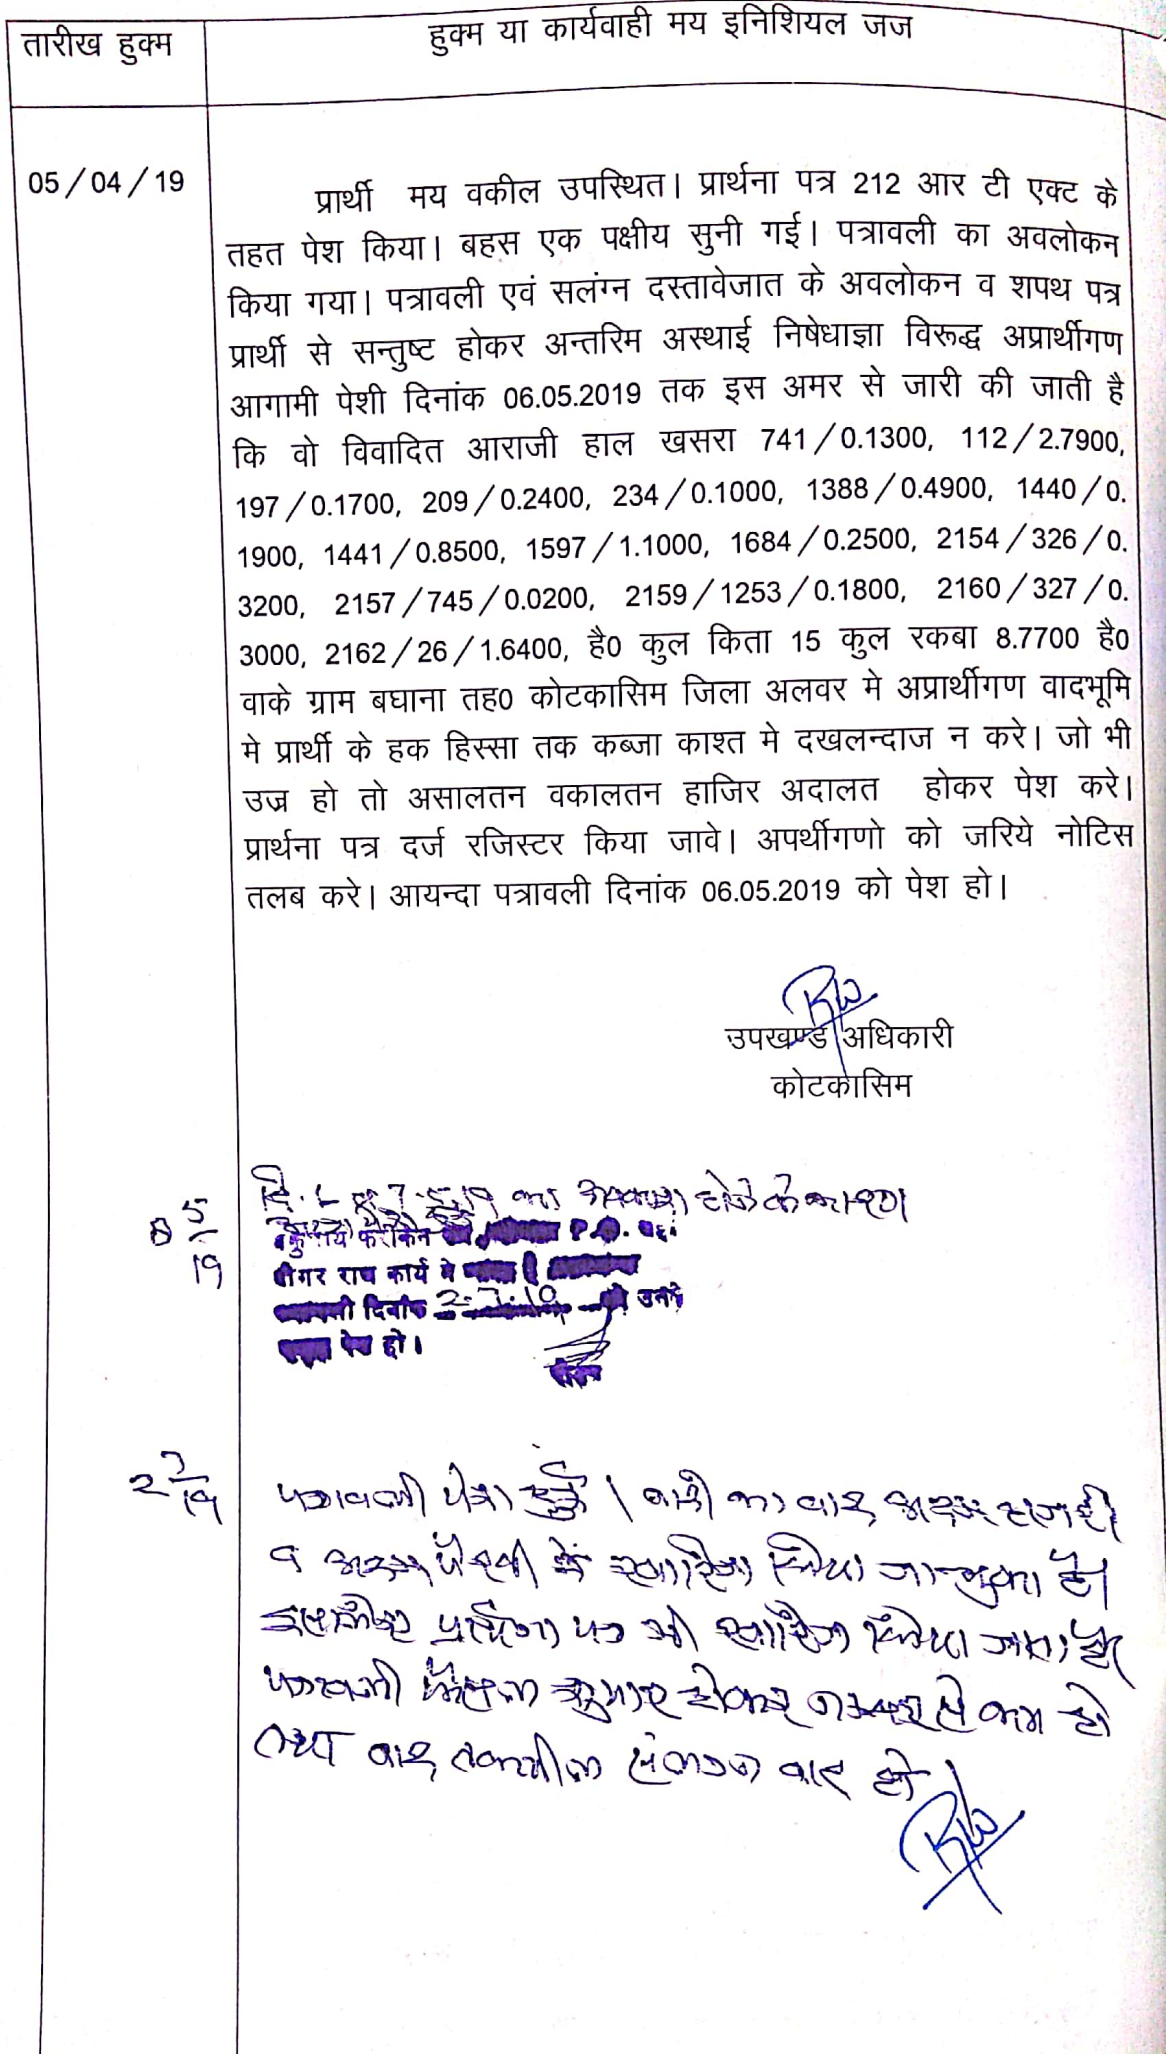 तारीख हुक्म
हुक्म या कार्यवाही मय इनिशियल जज
05/04/19
प्रार्थी मय वकील उपस्थित। प्रार्थना पत्र 212 आर टी एक्ट के
तहत पेश किया। बहस एक पक्षीय सुनी गई। पत्रावली का अवलोकन
किया गया। पत्रावली एवं सलंग्न दस्तावेजात के अवलोकन व शपथ पत्र
प्रार्थी से सन्तुष्ट होकर अन्तरिम अस्थाई निषेधाज्ञा विरूद्ध अप्रार्थीगण
आगामी पेशी दिनांक 06.05.2019 तक इस अमर से जारी की जाती है
कि वो विवादित आराजी हाल खसरा 741/0.1300, 112/2.7900,
197/0.1700, 209/0.2400, 234/0.1000, 1388/0.4900, 1440/0.
1900, 1441/0.8500, 1597/1.1000, 1684/0.2500, 2154/326/0.
3200, 2157/745/0.0200, 2159/1253/0.1800, 2160/327/0.
3000, 2162/26/1.6400, है0 कुल किता 15 कुल रकबा 8.7700 है0
वाके ग्राम बघाना तह0 कोटकासिम जिला अलवर मे अप्रार्थीगण वादभूमि
मे प्रार्थी के हक हिस्सा तक कब्जा काश्त मे दखलन्दाज न करे। जो भी
उज्र हो तो असालतन वकालतन हाजिर अदालत होकर पेश करे।
प्रार्थना पत्र दर्ज रजिस्टर किया जावे। अपर्थीगणो को जरिये नोटिस
तलब करे। आयन्दा पत्रावली दिनांक 06.05.2019 को पेश हो।
उपखण्ड अधिकारी
कोटकासिम
8 5/19
का अवकाश होने के कारण
P.O.
राज कार्य मे
दिनांक 2.7.19
पेश हो।
2 7/19
पत्रावली पेश हुई। वादी का वाद अदम हाजरी
व अदम पैरवी में खारिज किया जा चुका है।
इसलिए प्रार्थना पत्र भी खारिज किया जाता है।
पत्रावली फैसल शुमार होकर नम्बर से कम हो
तथा बाद तकमील संलग्न वाद हो।